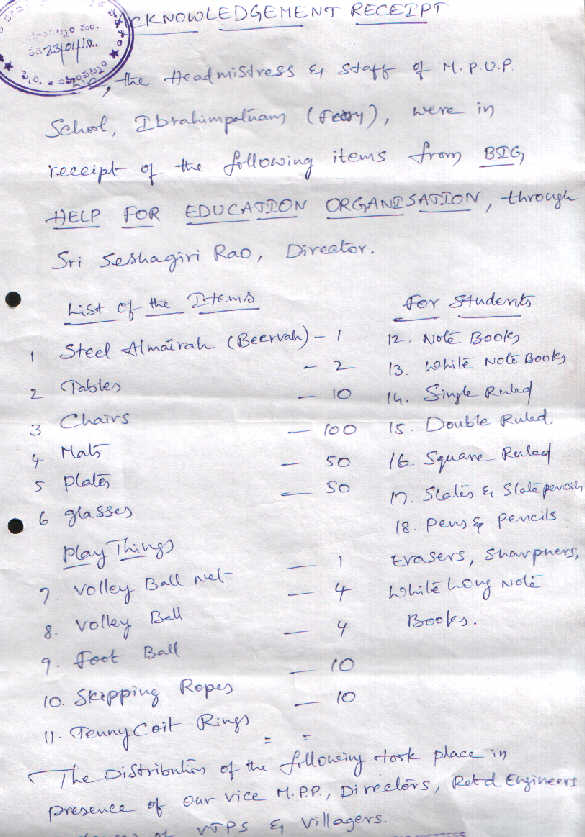 ACKNOWLEDGEMENT RECEIPT
23/04/10
, the Headmistress & staff of M.P.U.P.
School, Ibrahimpatnam (Ferry), were in
receipt of the following items from BIG
HELP FOR EDUCATION ORGANISATION, through
Sri Seshagiri Rao, Director.
List of the Items
1 Steel Almairah (Beervah) - 1
2 Tables - 2
3 Chairs - 10
4 Mats - 100
5 Plates - 50
6 glasses - 50
Play Things
7 Volley Ball Net - 1
8. Volley Ball - 4
9. Foot Ball - 4
10. Skipping Ropes - 10
11. TennyCoit Rings - 10
For Students
12. Note Books
13. White Note Books
14. Single Ruled
15. Double Ruled.
16. Square Ruled
17. Slates & Slate pencils
18. Pens & Pencils
Erasers, Sharpners,
White Long Note
Books.
The Distribution of the following took place in
presence of our vice M.P.P., Directors, Retd Engineers
of VTPS & Villagers.